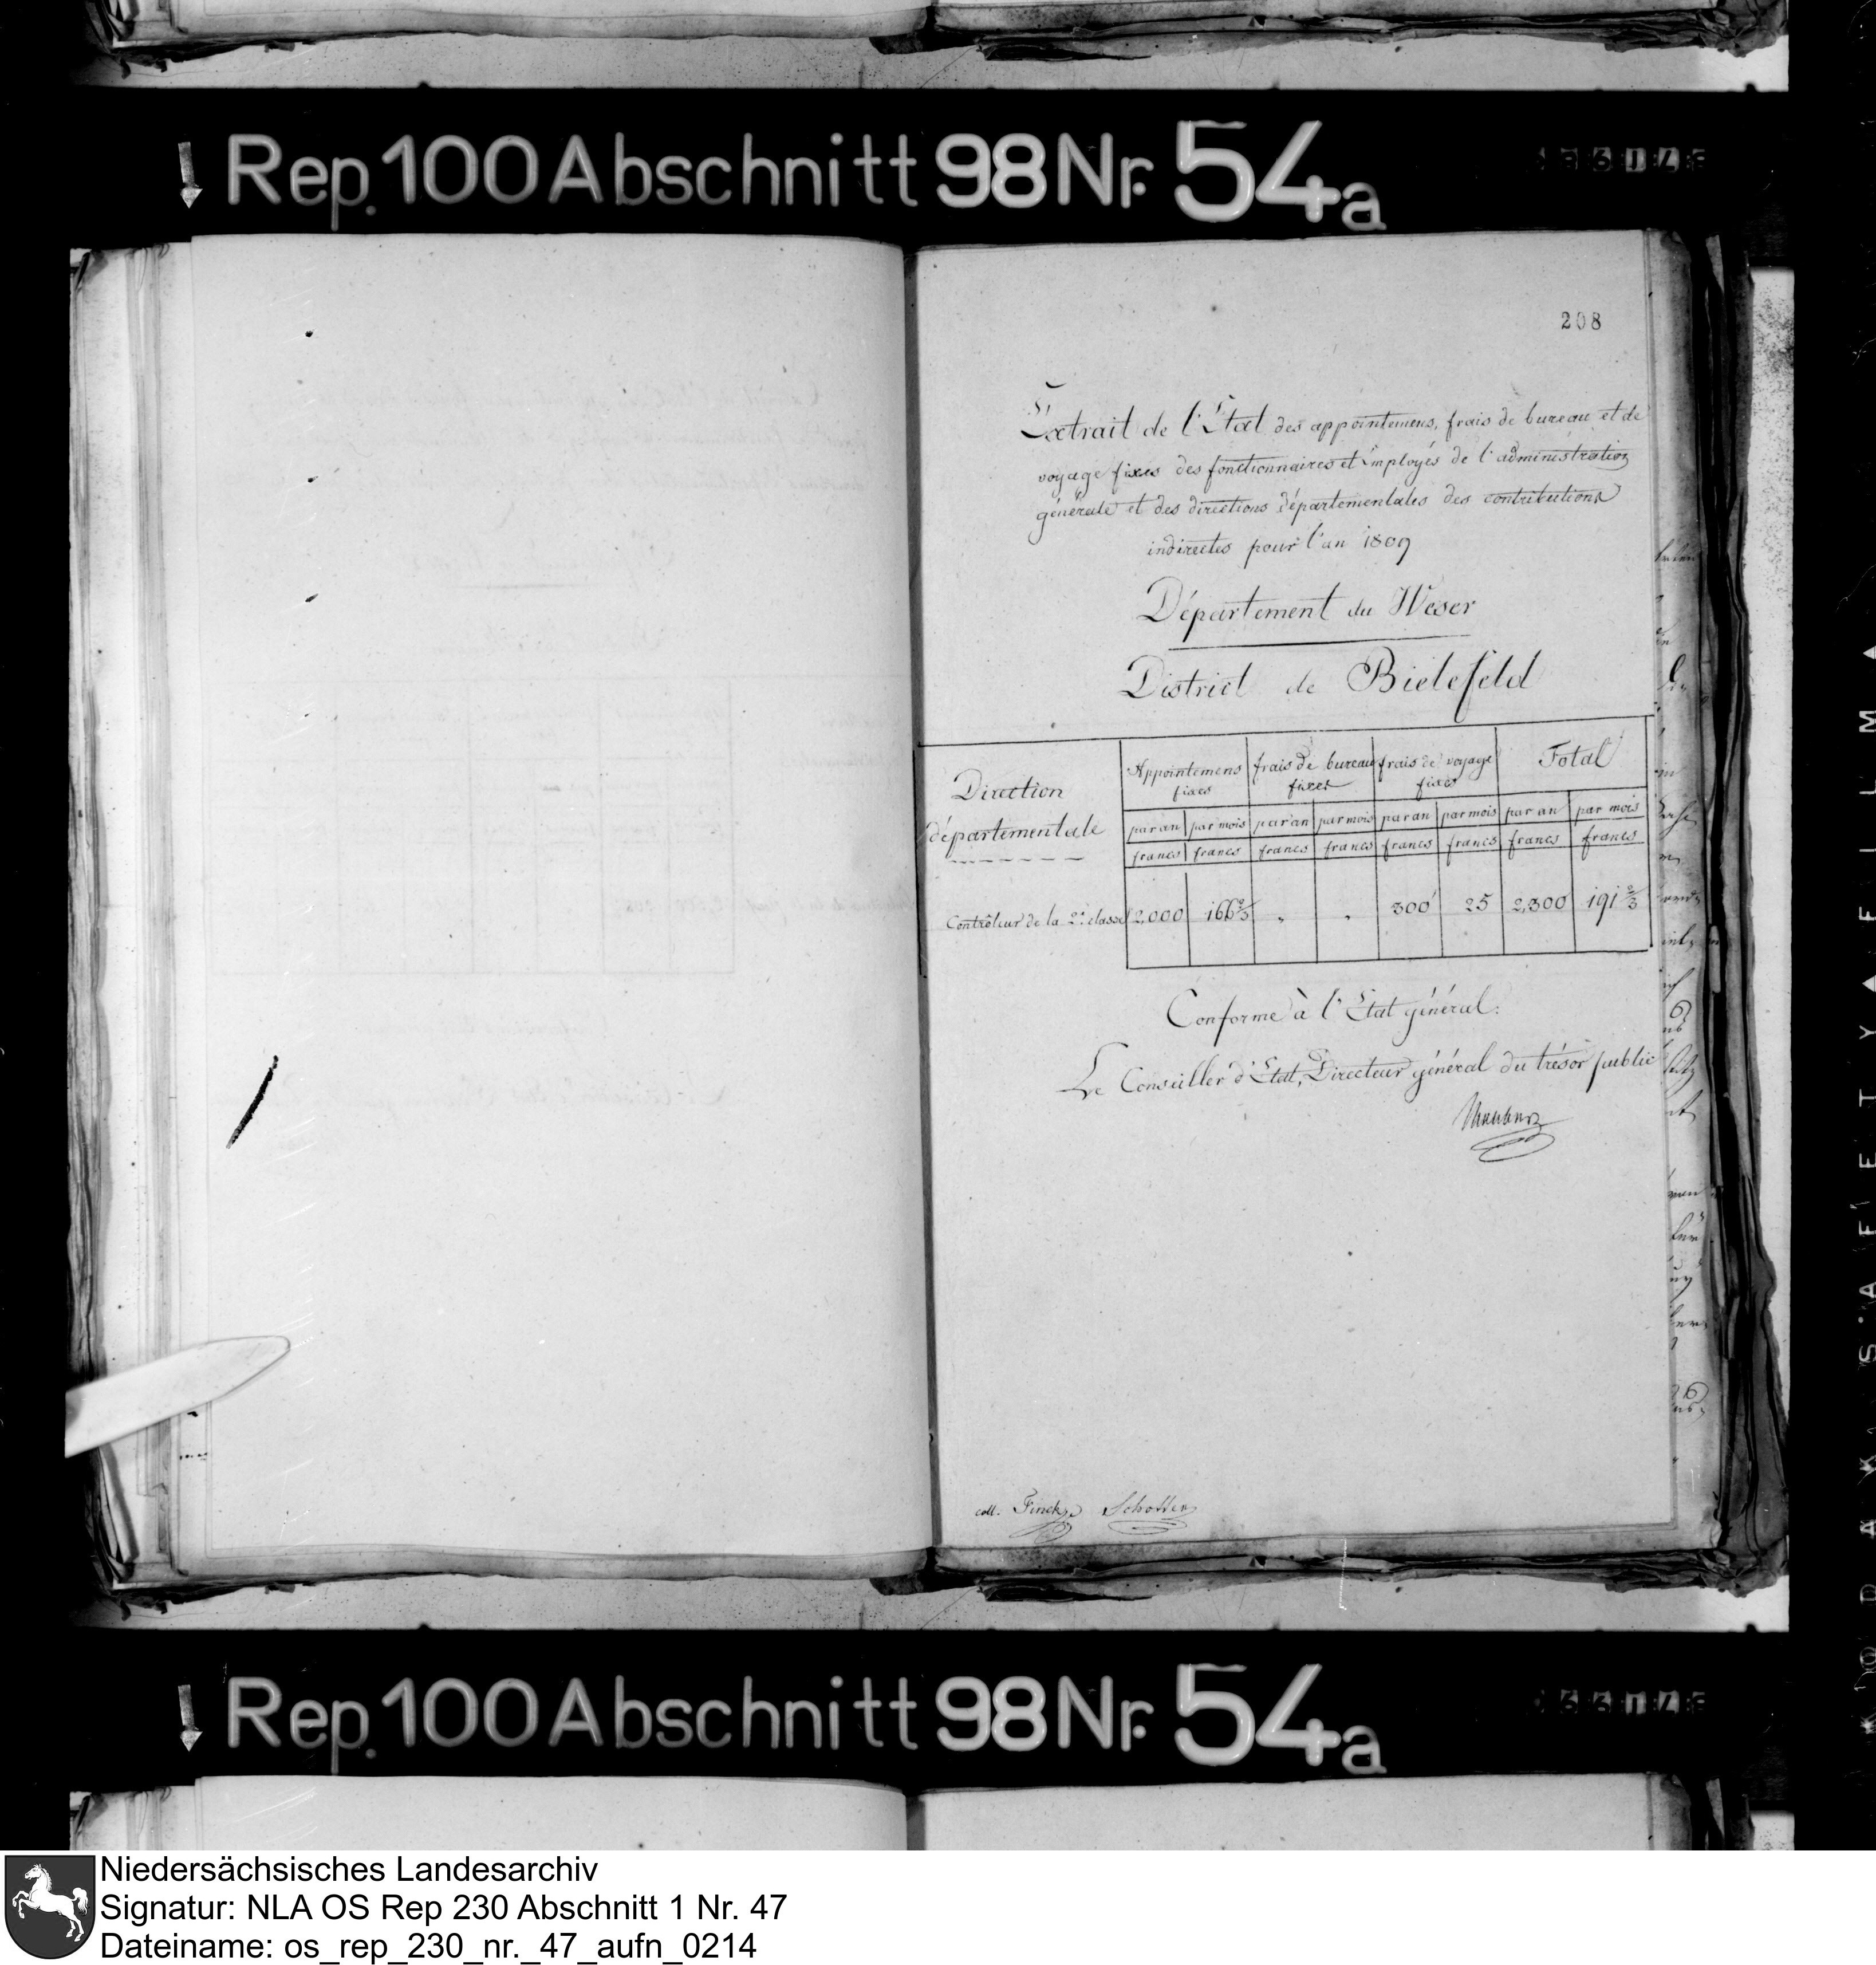 Rep. 100 Abschnitt 98 Nr. 54a
208
Extrait de l'Etat des appointemens, frais de bureau et de
voyage fixes des fonctionnaires et employés de l'administration
générale et des directions départementales des contributions
indirectes pour l'an 1809
Département du Weser
District de Bielefeld
Direction
départementale
Appointemens
fixes
frais de bureau
fixes
frais de voyage
fixes
Total
par an par mois par an par mois par an par mois par an par mois
francs francs francs francs francs francs francs francs
Contrôleur de la 2e classe 2,000 166 2/3 " " 300 25 2,300 191 2/3
Conforme à l'Etat général:
Le Conseiller d'Etat, Directeur général du trésor public
coll. Finck Schotten
Rep. 100 Abschnitt 98 Nr. 54a
KODAK SAFETY FILM
Niedersächsisches Landesarchiv
Signatur: NLA OS Rep 230 Abschnitt 1 Nr. 47
Dateiname: os_rep_230_nr._47_aufn_0214